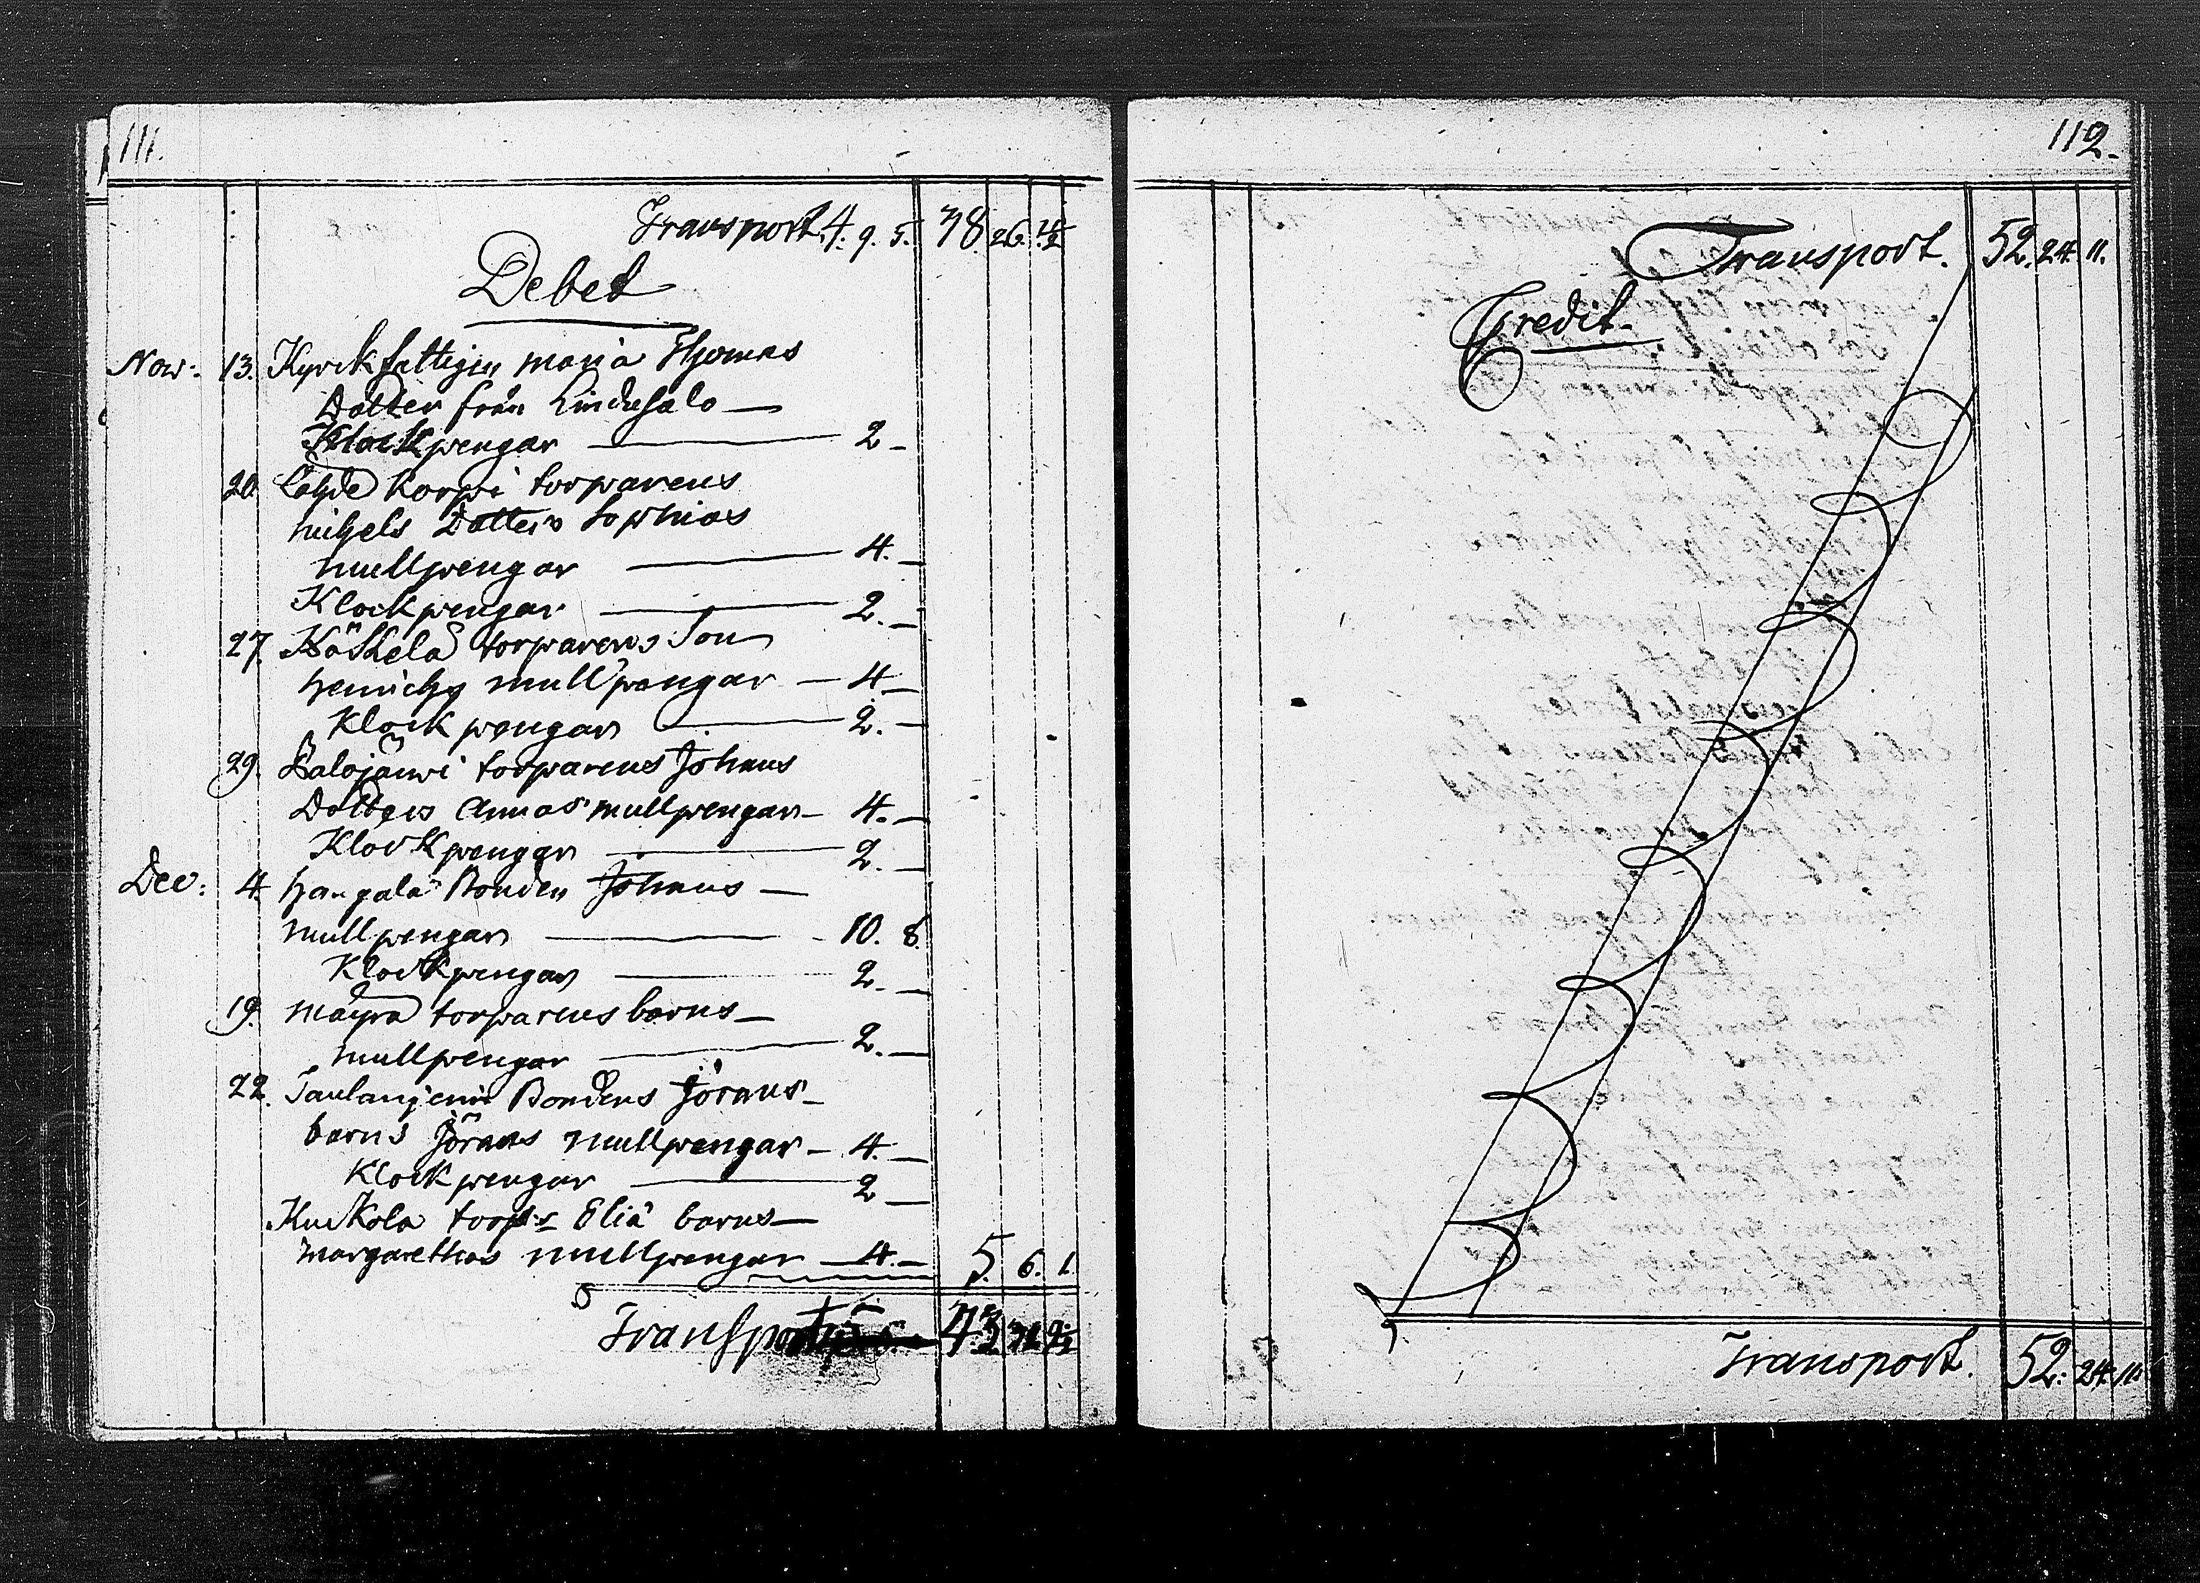 111.
Transport. 4. 9. 5. 38 26.
Debet
Now: 13. Kyrckfattigen maria Thomas
Dotter från Lindusalo —
Klockpengar — 2 –
20. Korpi torparens
Dotters Sophias
mullpengar — 4. –
Klockpengar — 2. –
27. torparens Son
Henrichs mullpengar – 4 –
Klockpengar — 2. –
29. Salojärwi torparens Johans
Dotters Annas mullpengar – 4. –
Klockpengar — 2. –
Dec: 4. Hangala Bonden Johans —
mullpengar — 10. 8.
Klockpengar — 2. –
19. Mäyrä torparens barns —
mullpengar — 2. –
22. Bondens Jörans –
barns Jörans mullpengar – 4. –
Klockpengar — 2 –
Kuckola torp:s Eliä barns —
margarethas mullpengar – 4. – 5. 6. 1.
Transport 43
112.
Transport. 52. 24. 11.
Credit.
Transport. 52. 24. 11.